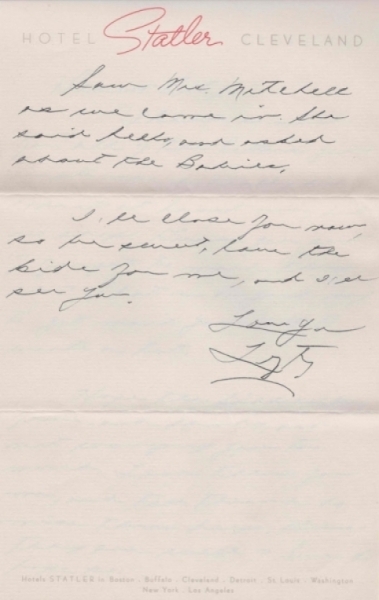 HOTEL Statler CLEVELAND
Saw Mrs. Mitchell
as we came in. She
said hello, and asked
about the Babies.
I'll close for now,
so be sweet, love the
kids for me, and I'll
see ya.
Love Ya
Hotels STATLER in Boston . Buffalo . Cleveland . Detroit . St. Louis . Washington
New York . Los Angeles